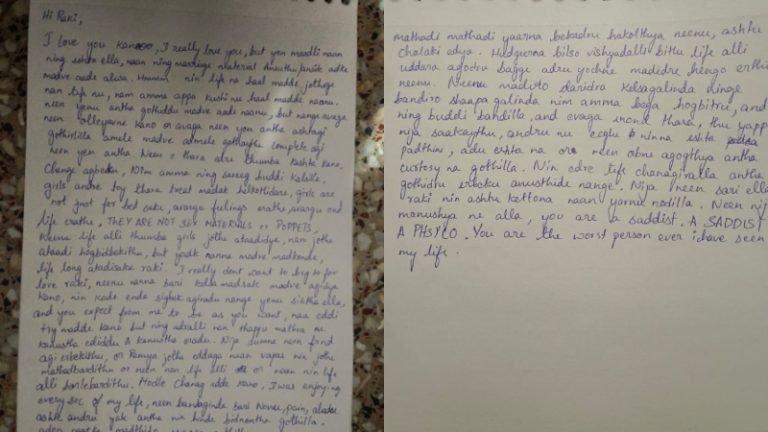 Hi Raki,
I love you kanooo, I really love you, but yen maadli naan
ning eshta ella, naan ning marriage material
madve aade alwa. Hmmm nin life na haal madde jothege
nan life nu, nam amma appa kushi nu haal madde naanu.
neen yenu antha gothiddu madve aade naanu, but nange avaga
neen olleyavne kano or avaga neen yon antha ashtagi
gothirlilla amele madve admele gothaythu complete agi
neen yen antha. Neen e thara adru thumba kashta kano,
Change agbeku, Nim amma ning sariyag buddi Kalsilla
girls andre hey thara treat madak helkotilare, girls are
not just for bed oukay, avargu feelings erathe, avargu ond
life erathe, THEY ARE NOT SEX MATERIALS or PUPPETS.
Neenu life alli thumba girls jothe ataadidya, nan jothe
ataadi hogbidbekithu, but yaak nanna madve madkonde,
life long atadisake raki. I really dont want to beg to for
love raki, neenu nanna bari kelsa madsake madve agidya
kano, nin kade enda sigbek agiradu nange yenu sikthe ella,
and you expect from me to be as you want, naa eddi
try madde kano but ning adralli nan thappu mathra ne
kanustha ediddu & kanustha eradu. Nija sumne neen frnd
agi erbekithu, or Ramya jothe eddaga naan vapas nin jothe
mathadbardithu or neen nan life alli or naan nin life
alli barlebardithu. Modle Chanag edde kano, I was enjoying
every sec of my life, neen bandaginda bari Novu, pain, alodu
ashte andru yak antha nin hinde bidnontha gothilla.
mathadi mathadi yaarna bekadru hakolthya neenu, ashtu
chalaki edya. Hudgurna bilso vishyadalli bithu life alli
uddara agodru bagge adru yochne madedre hengo erthidde
neenu. Neenu maduvo daridra kelsagalinda ninge
bandiro shaapa galinda nim amma bega hogbitru, and
ning buddi bandilla, and evaga inond thara, thu yappa
nija saakaythu, andru nu eeglu ninna eshta
padthini, adu eshta na or neen obne agogthya antha
curtosy na gothilla. Nin edre life chanagiralla antha
gothidru erbeku anusthide nange. Nija neen sari ella
raki nin ashtu kettona naan yarnu nodilla. Neen nija
manushya ne alla, you are a saddist. A SADDIST
A PHSYCO. You are the worst person ever i have seen
my life.